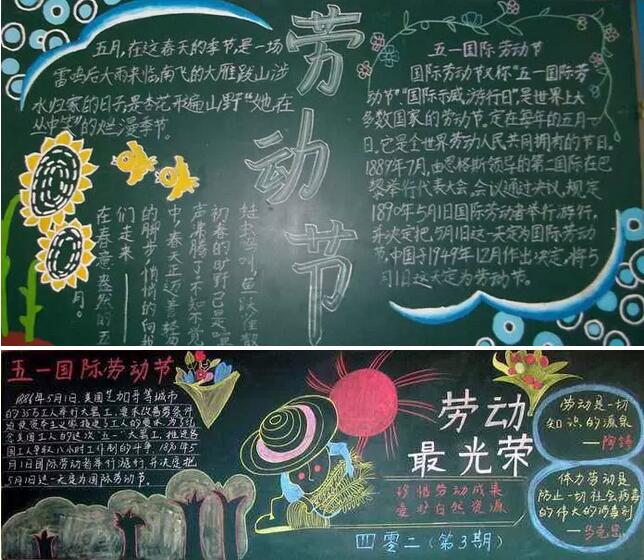 五月,在这春天的季节,是一场
雷鸣后大雨来临南飞的大雁跋山涉
水归家的日子,是杏花形遍山野“她在
丛中笑”的烂漫季节。
劳动节
初春的旷野已是喧
声沸腾了,不知不觉
中,春天正迈着轻盈
的脚步,悄悄的向我
们走来——
在春意盎然的五月。
五一国际劳动节
国际劳动节又称“五一国际劳
动节”、“国际示威游行日”,是世界上大
多数国家的劳动节。定在每年的五月一
日。它是全世界劳动人民共同拥有的节日。
1889年7月,由恩格斯领导的第二国际在巴
黎举行代表大会。会议通过决议,规定
1890年5月1日国际劳动者举行游行,
并决定把5月1日这一天定为国际劳动
节。中国于1949年12月作出决定,将5
月1日这天定为劳动节。
五一国际劳动节
1886年5月1日,美国芝加哥等城市
的35万工人举行大罢工,要求改善劳动条件
念美国工人的这次“五一”大罢工,推进各
国工人争取八小时工作制的斗争,1890年5
月1日国际劳动者举行游行,并决定把
5月1日这一天定为国际劳动节。
劳动
最光荣
珍惜劳动成果
爱护自然资源
四零二(第3期)
劳动是一切
知识的源泉
——陶铸
体力劳动是
防止一切社会病毒
的伟大的消毒剂
——马克思